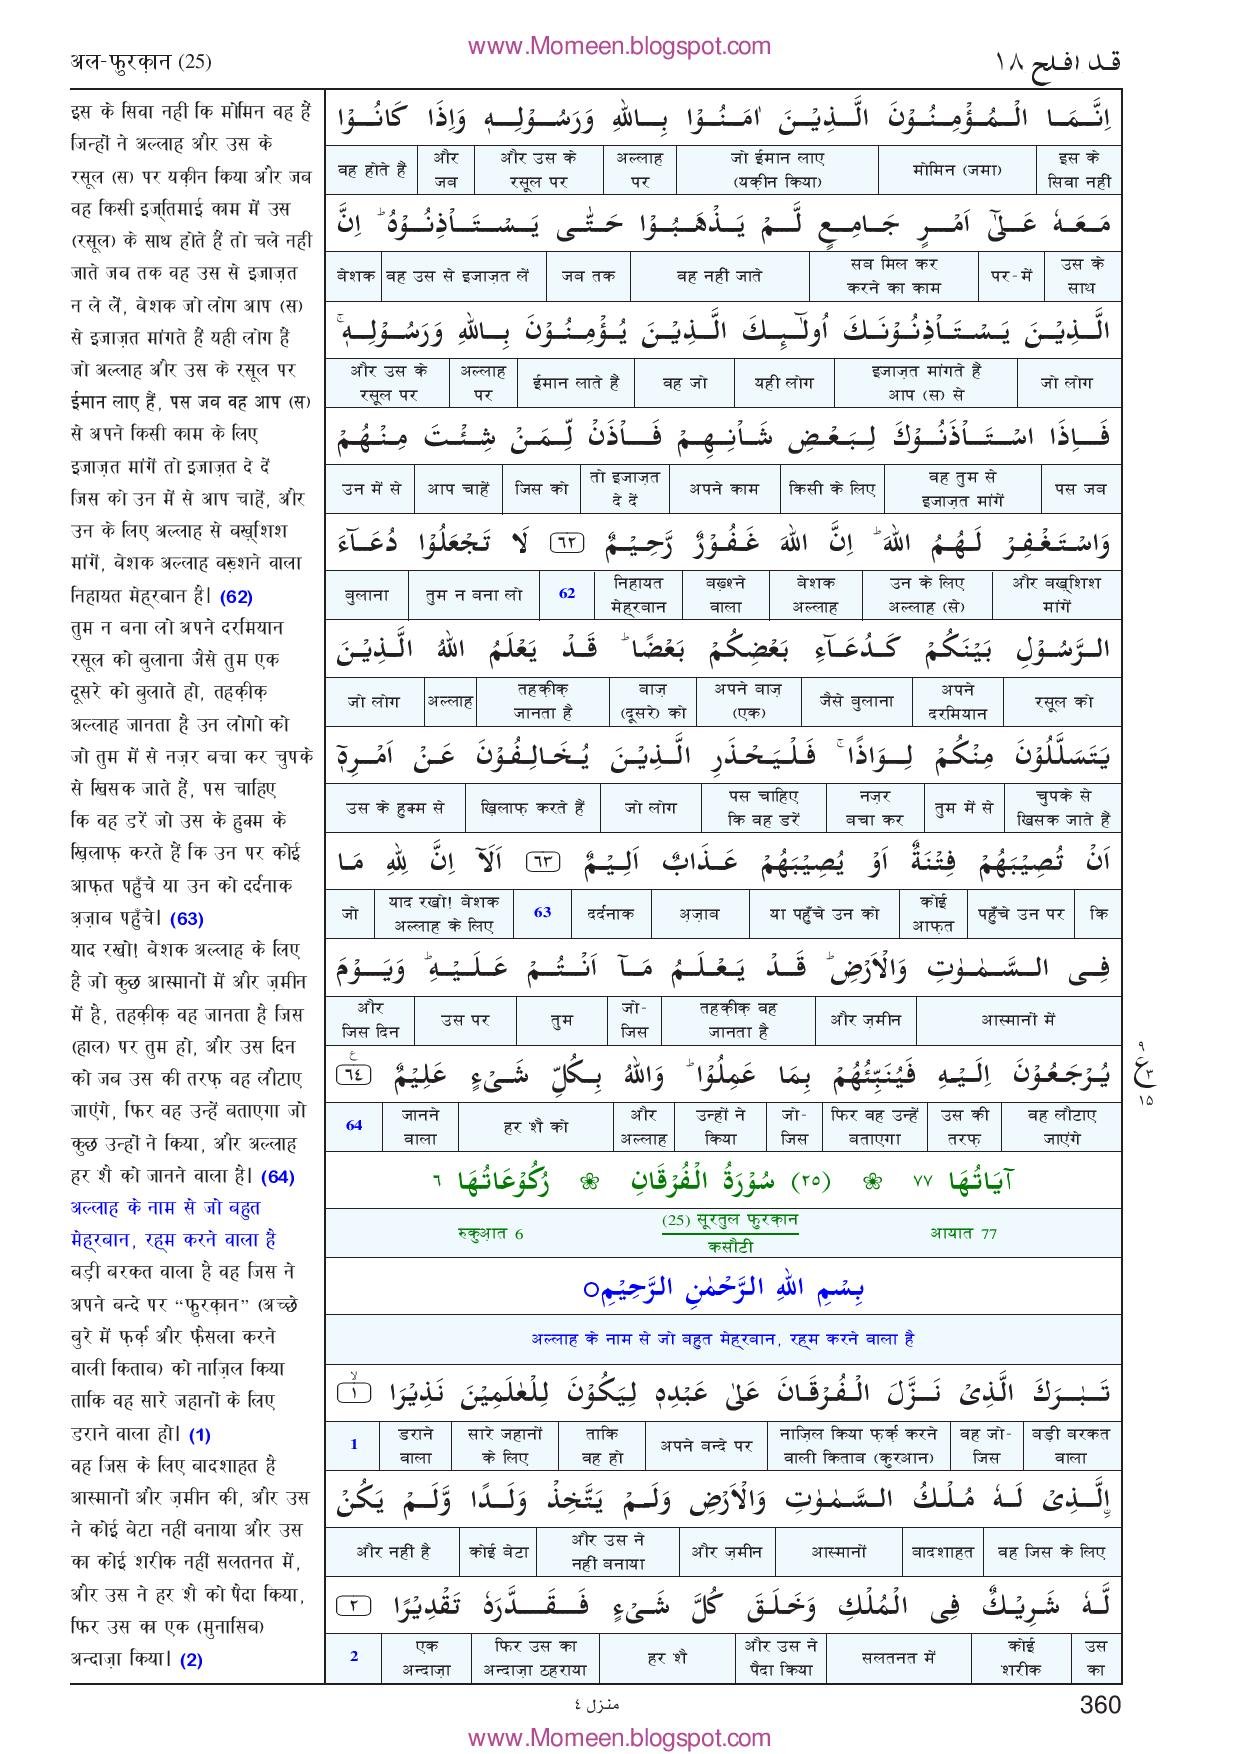 www.Momeen.blogspot.com
अल-फुरक़ान (25)
قد افلح ١٨
इस के सिवा नहीं कि मोमिन वह हैं
जिन्हों ने अल्लाह और उस के
रसूल (स) पर यक़ीन किया और जब
वह किसी इज्तिमाई काम में उस
(रसूल) के साथ होते हैं तो चले नहीं
जाते जब तक वह उस से इजाज़त
न ले लें, बेशक जो लोग आप (स)
से इजाज़त मांगते हैं यही लोग हैं
जो अल्लाह और उस के रसूल पर
ईमान लाए हैं, पस जब वह आप (स)
से अपने किसी काम के लिए
इजाज़त मांगें तो इजाज़त दे दें
जिस को उन में से आप चाहें, और
उन के लिए अल्लाह से बख़्शिश
मांगें, बेशक अल्लाह बख़्शने वाला
निहायत मेह्रबान है। (62)
तुम न बना लो अपने दरमियान
रसूल को बुलाना जैसे तुम एक
दूसरे को बुलाते हो, तहक़ीक़
अल्लाह जानता है उन लोगों को
जो तुम में से नज़र बचा कर चुपके
से खिसक जाते हैं, पस चाहिए
कि वह डरें जो उस के हुक्म के
ख़िलाफ़ करते हैं कि उन पर कोई
आफ़त पहुँचे या उन को दर्दनाक
अ़ज़ाब पहुँचे। (63)
याद रखो! बेशक अल्लाह के लिए
है जो कुछ आस्मानों में और ज़मीन
में है, तहक़ीक़ वह जानता है जिस
(हाल) पर तुम हो, और उस दिन
को जब उस की तरफ़ वह लौटाए
जाएंगे, फिर वह उन्हें बताएगा जो
कुछ उन्हों ने किया, और अल्लाह
हर शै को जानने वाला है। (64)
अल्लाह के नाम से जो बहुत
मेह्रबान, रह्म करने वाला है
बड़ी बरकत वाला है वह जिस ने
अपने बन्दे पर “फुरक़ान” (अच्छे
बुरे में फ़र्क़ और फ़ैसला करने
वाली किताब) को नाज़िल किया
ताकि वह सारे जहानों के लिए
डराने वाला हो। (1)
वह जिस के लिए बादशाहत है
आस्मानों और ज़मीन की, और उस
ने कोई बेटा नहीं बनाया और उस
का कोई शरीक नहीं सलतनत में,
और उस ने हर शै को पैदा किया,
फिर उस का एक (मुनासिब)
अन्दाज़ा किया। (2)
اِنَّمَا الْمُؤْمِنُوْنَ الَّذِيْنَ اٰمَنُوْا بِاللّٰهِ وَرَسُوْلِهٖ وَاِذَا كَانُوْا
इस के सिवा नहीं | मोमिन (जमा) | जो ईमान लाए (यक़ीन किया) | अल्लाह पर | और उस के रसूल पर | और जब | वह होते हैं
مَعَهٗ عَلٰٓى اَمْرٍ جَامِعٍ لَّمْ يَذْهَبُوْا حَتّٰى يَسْتَاْذِنُوْهُ ؕ اِنَّ
उस के साथ | पर-में | सब मिल कर करने का काम | वह नहीं जाते | जब तक | वह उस से इजाज़त लें | बेशक
الَّذِيْنَ يَسْتَاْذِنُوْنَكَ اُولٰٓئِكَ الَّذِيْنَ يُؤْمِنُوْنَ بِاللّٰهِ وَرَسُوْلِهٖ ۚ
जो लोग | इजाज़त मांगते हैं आप (स) से | यही लोग | वह जो | ईमान लाते हैं | अल्लाह पर | और उस के रसूल पर
فَاِذَا اسْتَاْذَنُوْكَ لِبَعْضِ شَاْنِهِمْ فَاْذَنْ لِّمَنْ شِئْتَ مِنْهُمْ
पस जब | वह तुम से इजाज़त मांगें | किसी के लिए | अपने काम | तो इजाज़त दे दें | जिस को | आप चाहें | उन में से
وَاسْتَغْفِرْ لَهُمُ اللّٰهَ ؕ اِنَّ اللّٰهَ غَفُوْرٌ رَّحِيْمٌ ٦٢ لَا تَجْعَلُوْا دُعَآءَ
और बख़्शिश मांगें | उन के लिए अल्लाह (से) | बेशक अल्लाह | बख़्शने वाला | निहायत मेह्रबान | 62 | तुम न बना लो | बुलाना
الرَّسُوْلِ بَيْنَكُمْ كَدُعَآءِ بَعْضِكُمْ بَعْضًا ؕ قَدْ يَعْلَمُ اللّٰهُ الَّذِيْنَ
रसूल को | अपने दरमियान | जैसे बुलाना | अपने बाज़ (एक) | बाज़ (दूसरे) को | तहक़ीक़ जानता है | अल्लाह | जो लोग
يَتَسَلَّلُوْنَ مِنْكُمْ لِوَاذًا ۚ فَلْيَحْذَرِ الَّذِيْنَ يُخَالِفُوْنَ عَنْ اَمْرِهٖٓ
चुपके से खिसक जाते हैं | तुम में से | नज़र बचा कर | पस चाहिए कि वह डरें | जो लोग | ख़िलाफ़ करते हैं | उस के हुक्म से
اَنْ تُصِيْبَهُمْ فِتْنَةٌ اَوْ يُصِيْبَهُمْ عَذَابٌ اَلِيْمٌ ٦٣ اَلَآ اِنَّ لِلّٰهِ مَا
कि | पहुँचे उन पर | कोई आफ़त | या पहुँचे उन को | अ़ज़ाब | दर्दनाक | 63 | याद रखो! बेशक अल्लाह के लिए | जो
فِى السَّمٰوٰتِ وَالْاَرْضِ ؕ قَدْ يَعْلَمُ مَآ اَنْتُمْ عَلَيْهِ ؕ وَيَوْمَ
आस्मानों में | और ज़मीन | तहक़ीक़ वह जानता है | जो-जिस | तुम | उस पर | और जिस दिन
يُرْجَعُوْنَ اِلَيْهِ فَيُنَبِّئُهُمْ بِمَا عَمِلُوْا ؕ وَاللّٰهُ بِكُلِّ شَىْءٍ عَلِيْمٌ ٦٤ ع
٩ ع ٣ ١٥
वह लौटाए जाएंगे | उस की तरफ़ | फिर वह उन्हें बताएगा | जो-जिस | उन्हों ने किया | और अल्लाह | हर शै को | जानने वाला | 64
آيَاتُهَا ٧٧ ❀ (٢٥) سُوْرَةُ الْفُرْقَانِ ❀ رُكُوْعَاتُهَا ٦
आयात 77 | (25) सूरतुल फुरक़ान कसौटी | रुकुआ़त 6
بِسْمِ اللّٰهِ الرَّحْمٰنِ الرَّحِيْمِ○
अल्लाह के नाम से जो बहुत मेह्रबान, रह्म करने वाला है
تَبٰرَكَ الَّذِىْ نَزَّلَ الْفُرْقَانَ عَلٰى عَبْدِهٖ لِيَكُوْنَ لِلْعٰلَمِيْنَ نَذِيْرًا ۙ ١
बड़ी बरकत वाला | वह जो-जिस | नाज़िल किया फ़र्क़ करने वाली किताब (कुरआन) | अपने बन्दे पर | ताकि वह हो | सारे जहानों के लिए | डराने वाला | 1
اِۨلَّذِىْ لَهٗ مُلْكُ السَّمٰوٰتِ وَالْاَرْضِ وَلَمْ يَتَّخِذْ وَلَدًا وَّلَمْ يَكُنْ
वह जिस के लिए | बादशाहत | आस्मानों | और ज़मीन | और उस ने नहीं बनाया | कोई बेटा | और नहीं है
لَّهٗ شَرِيْكٌ فِى الْمُلْكِ وَخَلَقَ كُلَّ شَىْءٍ فَقَدَّرَهٗ تَقْدِيْرًا ٢
उस का | कोई शरीक | सलतनत में | और उस ने पैदा किया | हर शै | फिर उस का अन्दाज़ा ठहराया | एक अन्दाज़ा | 2
منزل ٤
360
www.Momeen.blogspot.com